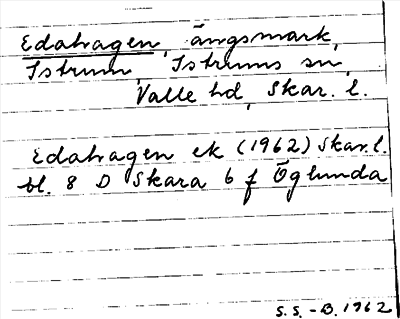 Edahagen, ängsmark,
Istrum, Istrums sn,
Valle hd, Skar. l.
Edahagen ek (1962) Skar. l.
bl. 8 D Skara 6 f Öglunda
S.S. - B. 1962